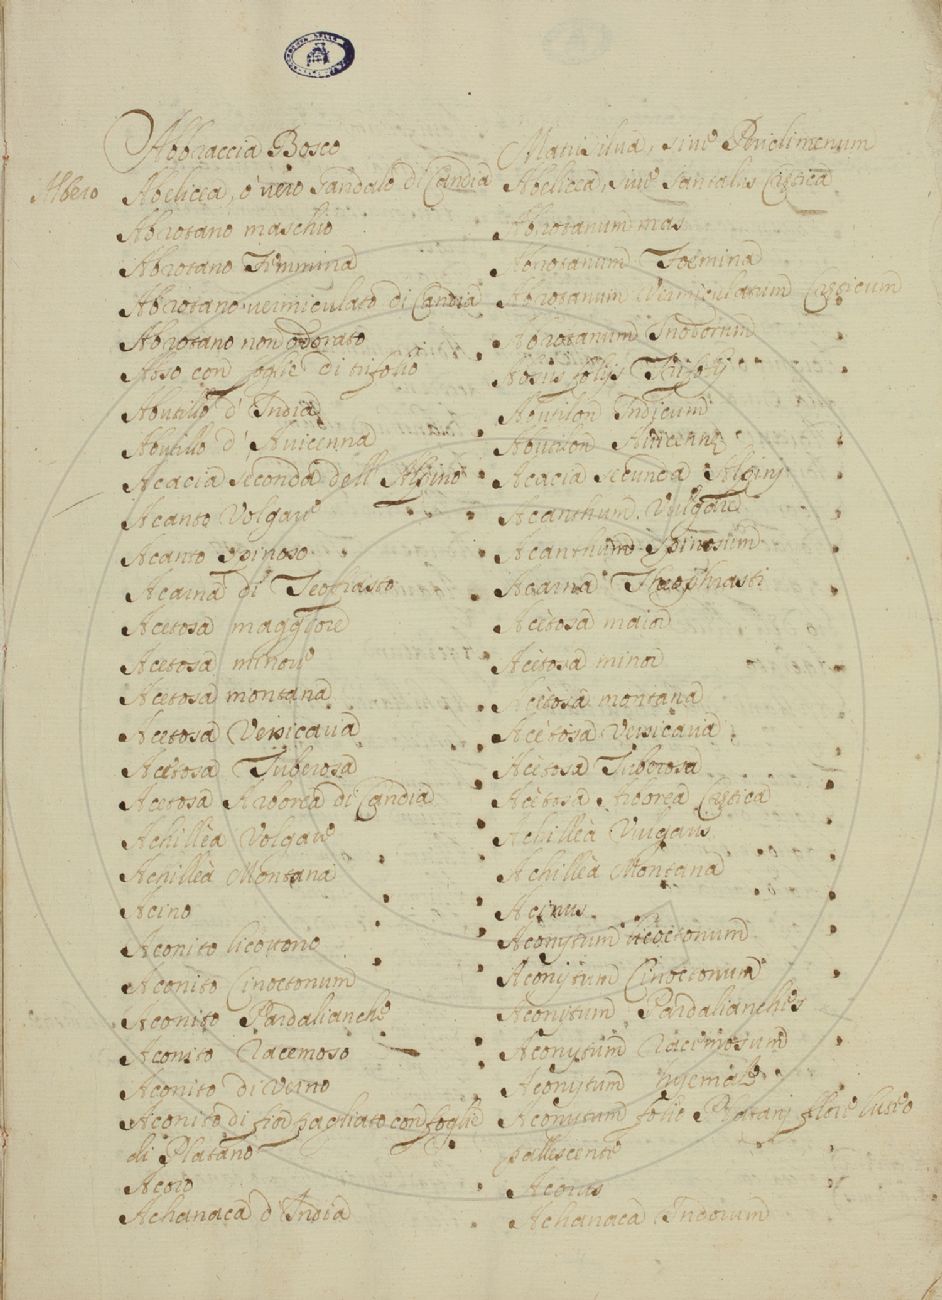 Abbraccia Bosco Matrisilva, sive Periclimenum
Albero Abelicea, ò vero Sandalo di Candia Abelicea, sive Santalus Cretica
Abrotano maschio Abrotanum mas
Abrotano Femmina Abrotanum Foemina
Abrotano vermiculato di Candia Abrotanum Vermiculatum Creticum
Abrotano non odorato Abrotanum Inodorum
Abso con foglie di trifolio Absus folijs Trifolij
Abutillo d'India Abutilon Indicum
Abutillo d'Avicenna Abutilon Avicennę
Acacia Seconda dell'Alpino Acacia Secunda Alpinj
Acanto Volgare Acanthum Vulgare
Acanto Spinoso Acanthum Spinosum
Acarna di Teofrasto Acarna Theophrasti
Acetosa maggiore Acetosa maior
Acetosa minore Acètosa minor
Acetosa montana Acètosa montana
Acetosa Vesicaria Acètosa Vesicaria
Acetosa Tuberosa Acètosa Tuberosa
Acetosa Arborea di Candia Acètosa Arborea Cretica
Achillèa Volgare Achillèa Vulgaris
Achillèa Montana Achillèa Montana
Acino Acinus
Aconito licottono Aconytum licoctonum
Aconito Cinoctonum Aconytum Cinoctonum
Aconito Pardalianche Aconytum Pardalianches
Aconito Racemoso Aconytum Racemosum
Aconito di Verno Aconytum hyemale
Aconito di fior pagliato con foglie Aconutum folio Platanj flore luteo
di Platano pallescente
Acoro Acorus
Achanaca d'India Achanaca Indorum